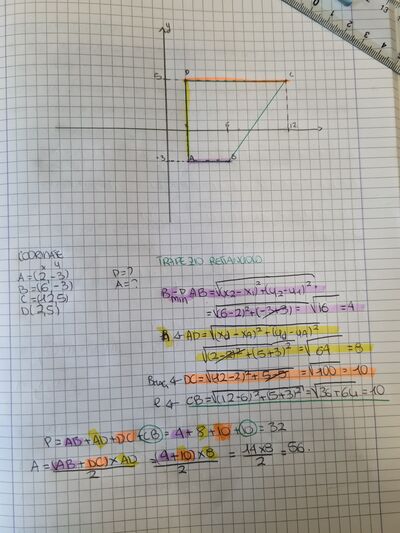 y
5
D
C
6
12
-3
A
B
COORDINATE
x y
A=(2,-3)
B=(6,-3)
C=(12,5)
D(2,5)
P=?
A=?
TRAPEZIO RETTANGOLO
AB=√(x2-x1)²+(y2-y1)²
=√(6-2)²+(-3+3)=√16=4
AD=√(xd-xa)²+(yd-ya)²
√(2-2)²+(5+3)²=√64=8
DC=√(12-2)²+5-5=√100=10
CB=√(12-6)²+(5+3)²=√36+64=10
P=AB+AD+DC+CB=4+8+10+10=32
A=(AB+DC)×AD/2=(4+10)×8/2=14×8/2=56.